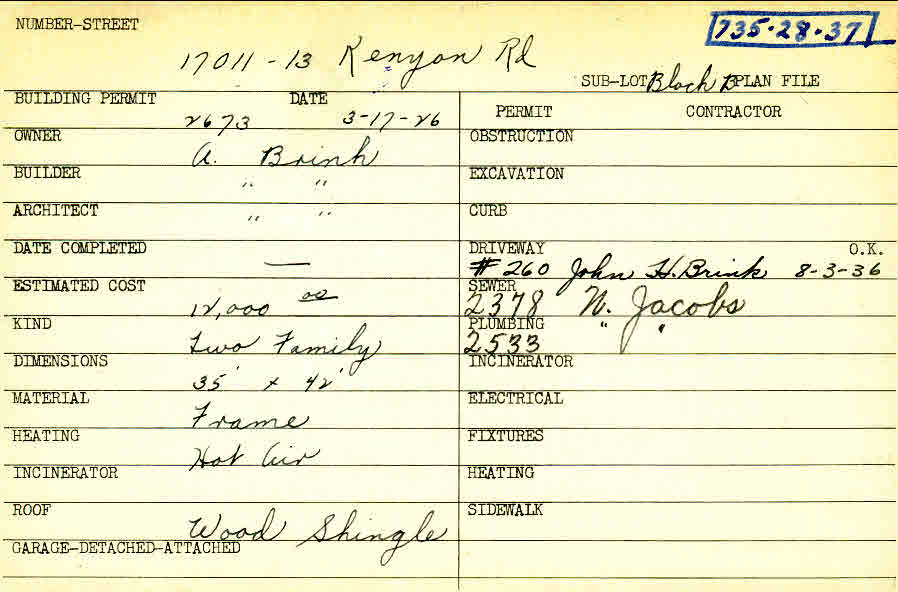 NUMBER-STREET
735-28-37
17011-13 Kenyon Rd
SUB-LOT Block B PLAN FILE
BUILDING PERMIT DATE
2673 3-17-26
PERMIT CONTRACTOR
OWNER
A. Brink
BUILDER
" "
ARCHITECT
" "
DATE COMPLETED
—
ESTIMATED COST
12,000 00
KIND
Two Family
DIMENSIONS
35' x 42'
MATERIAL
Frame
HEATING
Hot Air
INCINERATOR
ROOF
Wood Shingle
GARAGE-DETACHED-ATTACHED
OBSTRUCTION
EXCAVATION
CURB
DRIVEWAY O.K.
# 260 John H. Brink 8-3-36
SEWER
2378 N. Jacobs
PLUMBING
2533 " "
INCINERATOR
ELECTRICAL
FIXTURES
HEATING
SIDEWALK